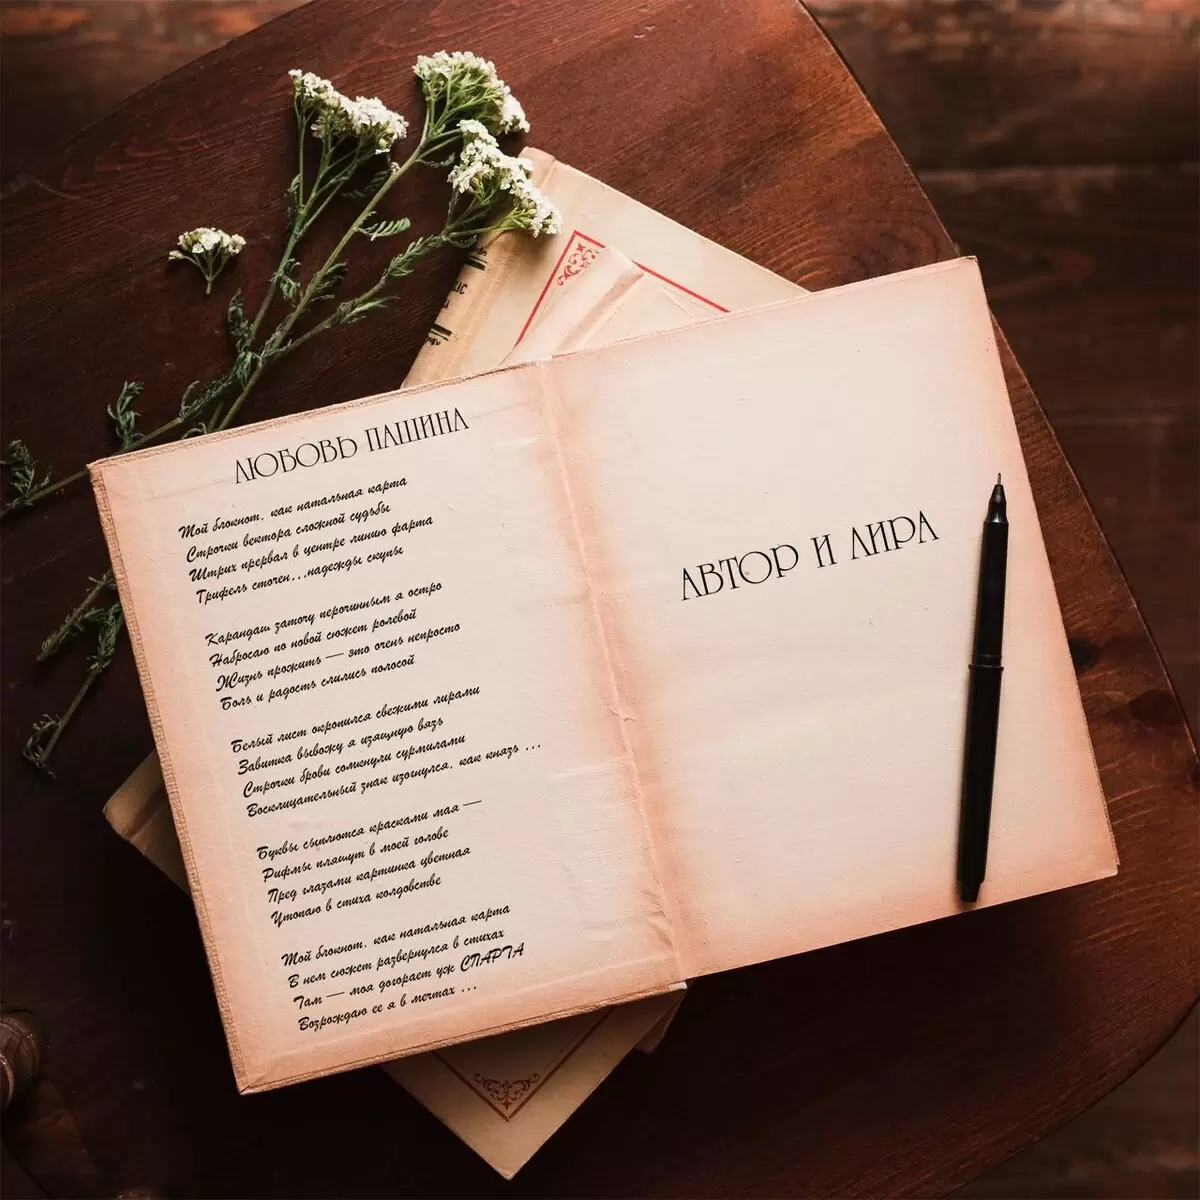 ЛЮБОВЬ ПАШИНА
Мой блокнот, как натальная карта
Строчки вектора сложной судьбы
Штрих прервал в центре линию фарта
Грифель сточен...надежды скупы
Карандаш заточу перочинным я остро
Набросаю по новой сюжет ролевой
Жизнь прожить — это очень непросто
Боль и радость слились полосой
Белый лист окропился свежими лирами
Завитка вывожу я изящную вязь
Строчки брови сомкнули сурмилами
Восклицательный знак изогнулся, как князь ...
Буквы сыплются красками мая —
Рифмы пляшут в моей голове
Пред глазами картинка цветная
Утопаю в стиха колдовстве
Мой блокнот, как натальная карта
В нем сюжет развернулся в стихах
Там — моя догорает уж СПАРТА
Возрождаю ее я в мечтах ...
АВТОР И ЛИРА